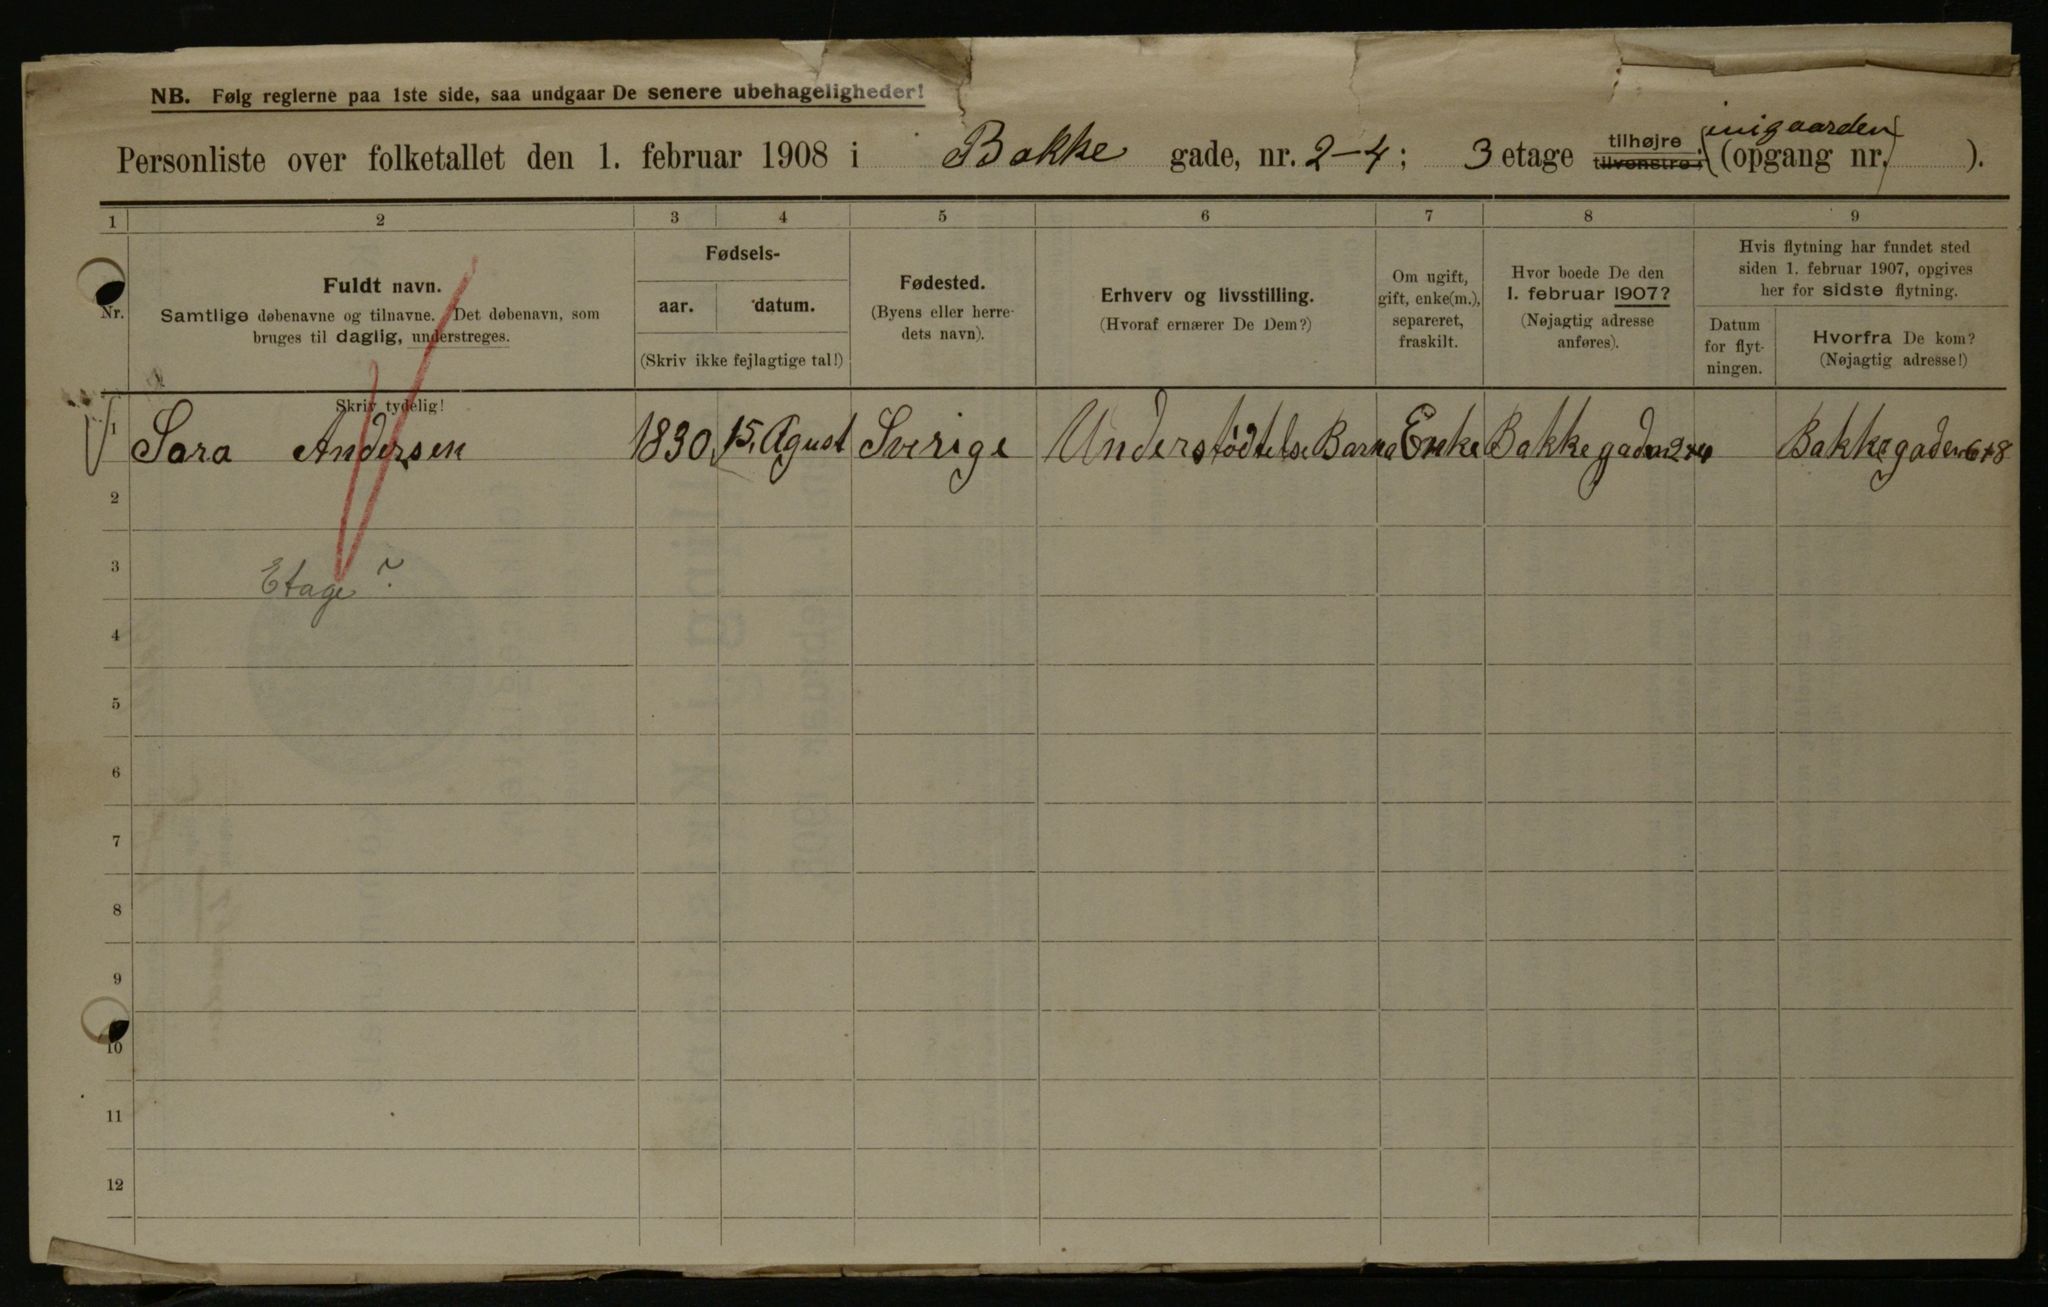 NB. Følg reglerne paa 1ste side, saa undgaar De senere ubehageligheder!
inigaarden
Personliste over folketallet den 1. februar 1908 i Bakke gade, nr. 2-4; 3 etage tilhøjre tilvenstre; (opgang nr. ).
1 2 3 4 5 6 7 8 9
Nr.
Fuldt navn.
Samtlige døbenavne og tilnavne. Det døbenavn, som
bruges til daglig, understreges.
Skriv tydelig!
Fødsels-
aar. datum.
(Skriv ikke fejlagtige tal!)
Fødested.
(Byens eller herre-
dets navn).
Erhverv og livsstilling.
(Hvoraf ernærer De Dem?)
Om ugift,
gift, enke(m.),
separeret,
fraskilt.
Hvor boede De den
1. februar 1907?
(Nøjagtig adresse
anføres).
Hvis flytning har fundet sted
siden 1. februar 1907, opgives
her for sidste flytning.
Datum
for flyt-
ningen.
Hvorfra De kom?
(Nøjagtig adresse!)
1 Sara Andersen 1830 15. Agust Sverige Understødtelse Barna Enke Bakkegaden 2+4 Bakkegaden 6+8
2
3 Etage?
4
5
6
7
8
9
10
11
12